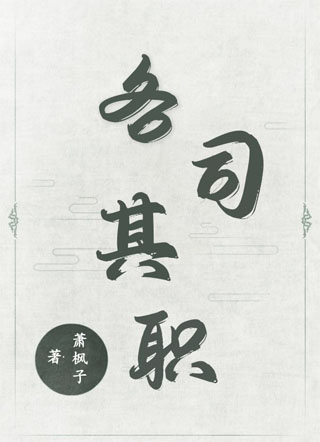 各司其职
萧枫子
著